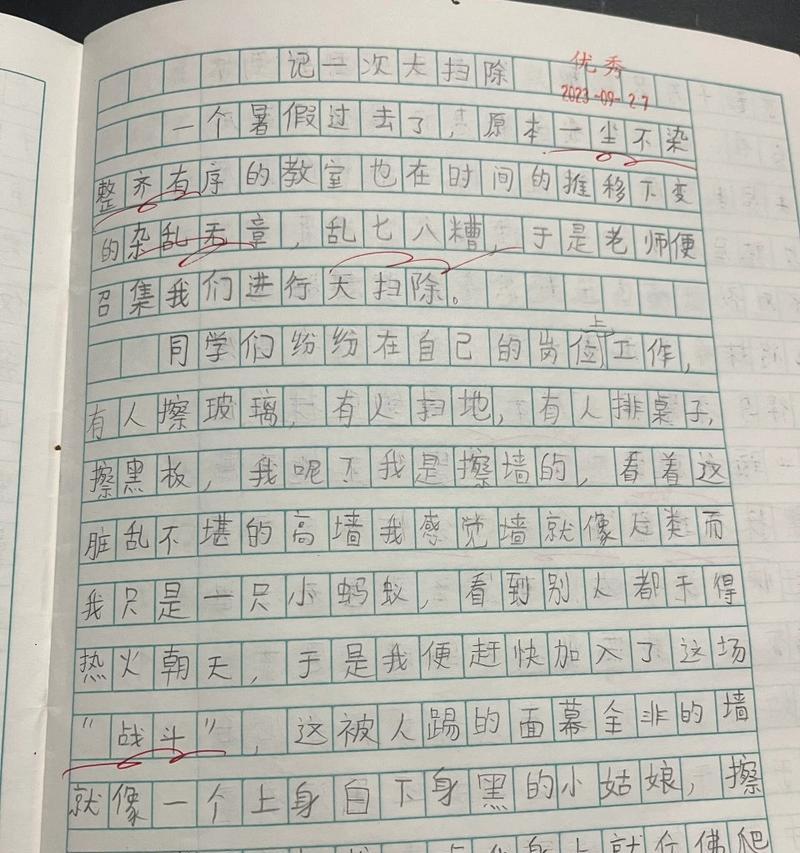 记一次大扫除
优秀
2023-09-27
一个暑假过去了，原本一尘不染
整齐有序的教室也在时间的推移下变
的杂乱无章，乱七八糟，于是老师便
召集我们进行大扫除。
同学们纷纷在自己的岗位上工作，
有人擦玻璃，有人扫地，有人排桌子，
擦黑板，我呢？我是擦墙的，看着这
脏乱不堪的高墙我感觉墙就像后类而
我只是一只小蚂蚁，看到别人都干得
热火朝天，于是我便赶快加入了这场
“战斗”，这被人踢的面幕全非的墙
就像一个上身白下身黑的小姑娘，擦
身上就仿佛爬